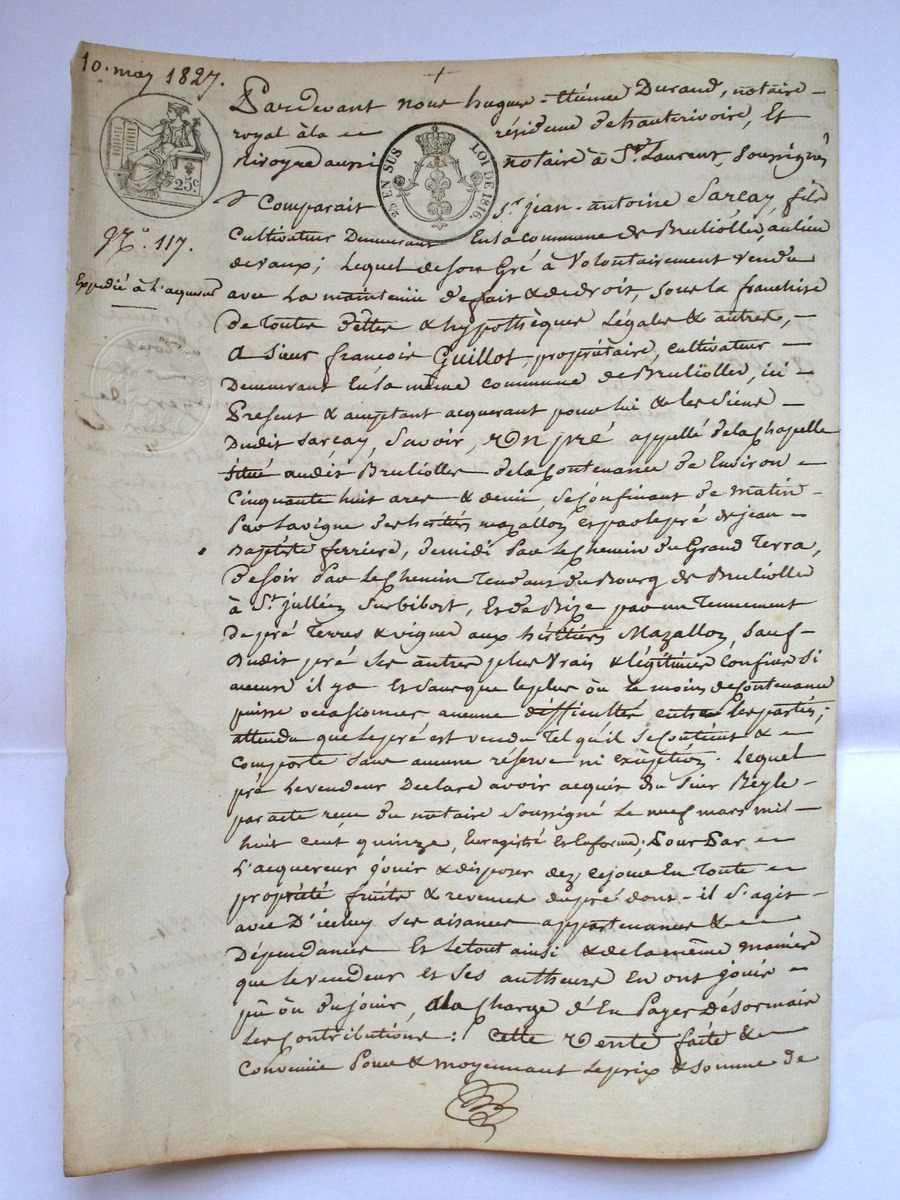 10. may 1827.
25c
2/5 EN SUS LOI DE 1816.
N.° 117.
Expedié à L'acquereur
Pardevant nous hugues-Etiénne Durand, notaire
royal à la résidence de hauterivoire, Et
notaire à St. Laurent, Soussignés
Comparait Sr. jean-antoine Sarcay fils
Cultivateur Demeurant En la commune de Brulliolles, au lieu
de vaux; Lequel de son Gré à Volontairement vendu
avec La maintenüe de fait & de droit, sous la franchise
de Toutes dettes & hypothèques Légales & autres,
A Sieur françois Guillot, propriétaire, cultivateur
Demeurant En la même commune de Brulliolles, ici
Present & acceptant acquerant pour lui & les Siens
Dudit Sarcay, Savoir, Un pré appellé de la Chapelle
situé audit Brulliolles de la Contenance de Environ
Cinquante huit ares & demie, se Confinant de matin
Par la vigne des héritiers mazallon et par le pré de jean
Baptiste ferriere, de midi Par Le Chemin du Grand Terra,
de soir Par Le Chemin Tendant du Bourg de Brulliolles
à St. jullien sur bibost, Et de Bize par un Tennement
De pré Terres & vigne aux héritiers Mazallon, Sauf
Dudit pré Ses autres plus Vrais & légitimes Confins Si
aucuns il y a Et sans que le plus où le moins de Contenance
puisse occasionner aucunne difficultés entre les parties;
attendu que Le pré est vendu Tel qu'il Se Contient &
Comporte sans aucune réserve ni exception. Lequel
pré Le vendeur Declare avoir acquis du Sieur Reyle
par acte reçu du notaire Soussigné Le neuf mars mil
huit cent quinze, Enregistré En la forme; Pour Par
L'acquereur jouir & disposer dez ce jour En Toute
propriété fruits & revenus du pré dont il s'agit
avec D'icelluy Ses aisances appartenances &
Dépendances Et le tout ainsi & de la même maniere
que le vendeur Et Ses autheurs En ont jouis
pû où du jouir, à la Charge d'En Payer Désormais
Les Contributions: Cette Vente faite &
Convenüe Pour & moyennant Le prix & somme de